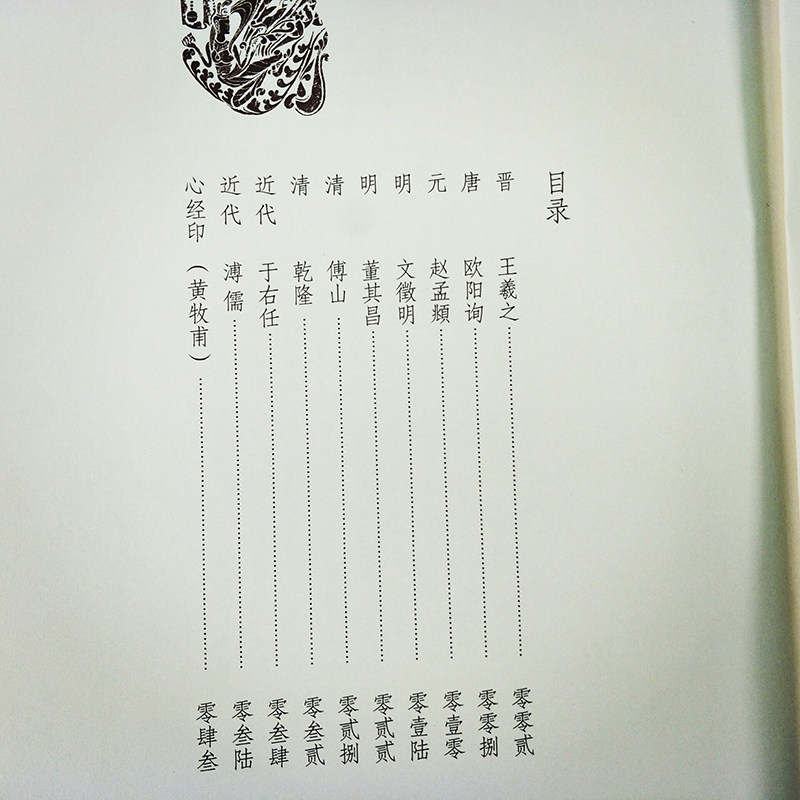 目录
晋 王羲之 零零贰
唐 欧阳询 零零捌
元 赵孟頫 零壹零
明 文徵明 零壹陆
明 董其昌 零贰贰
清 傅山 零贰捌
清 乾隆 零叁贰
近代 于右任 零叁肆
近代 溥儒 零叁陆
心经印(黄牧甫) 零肆叁